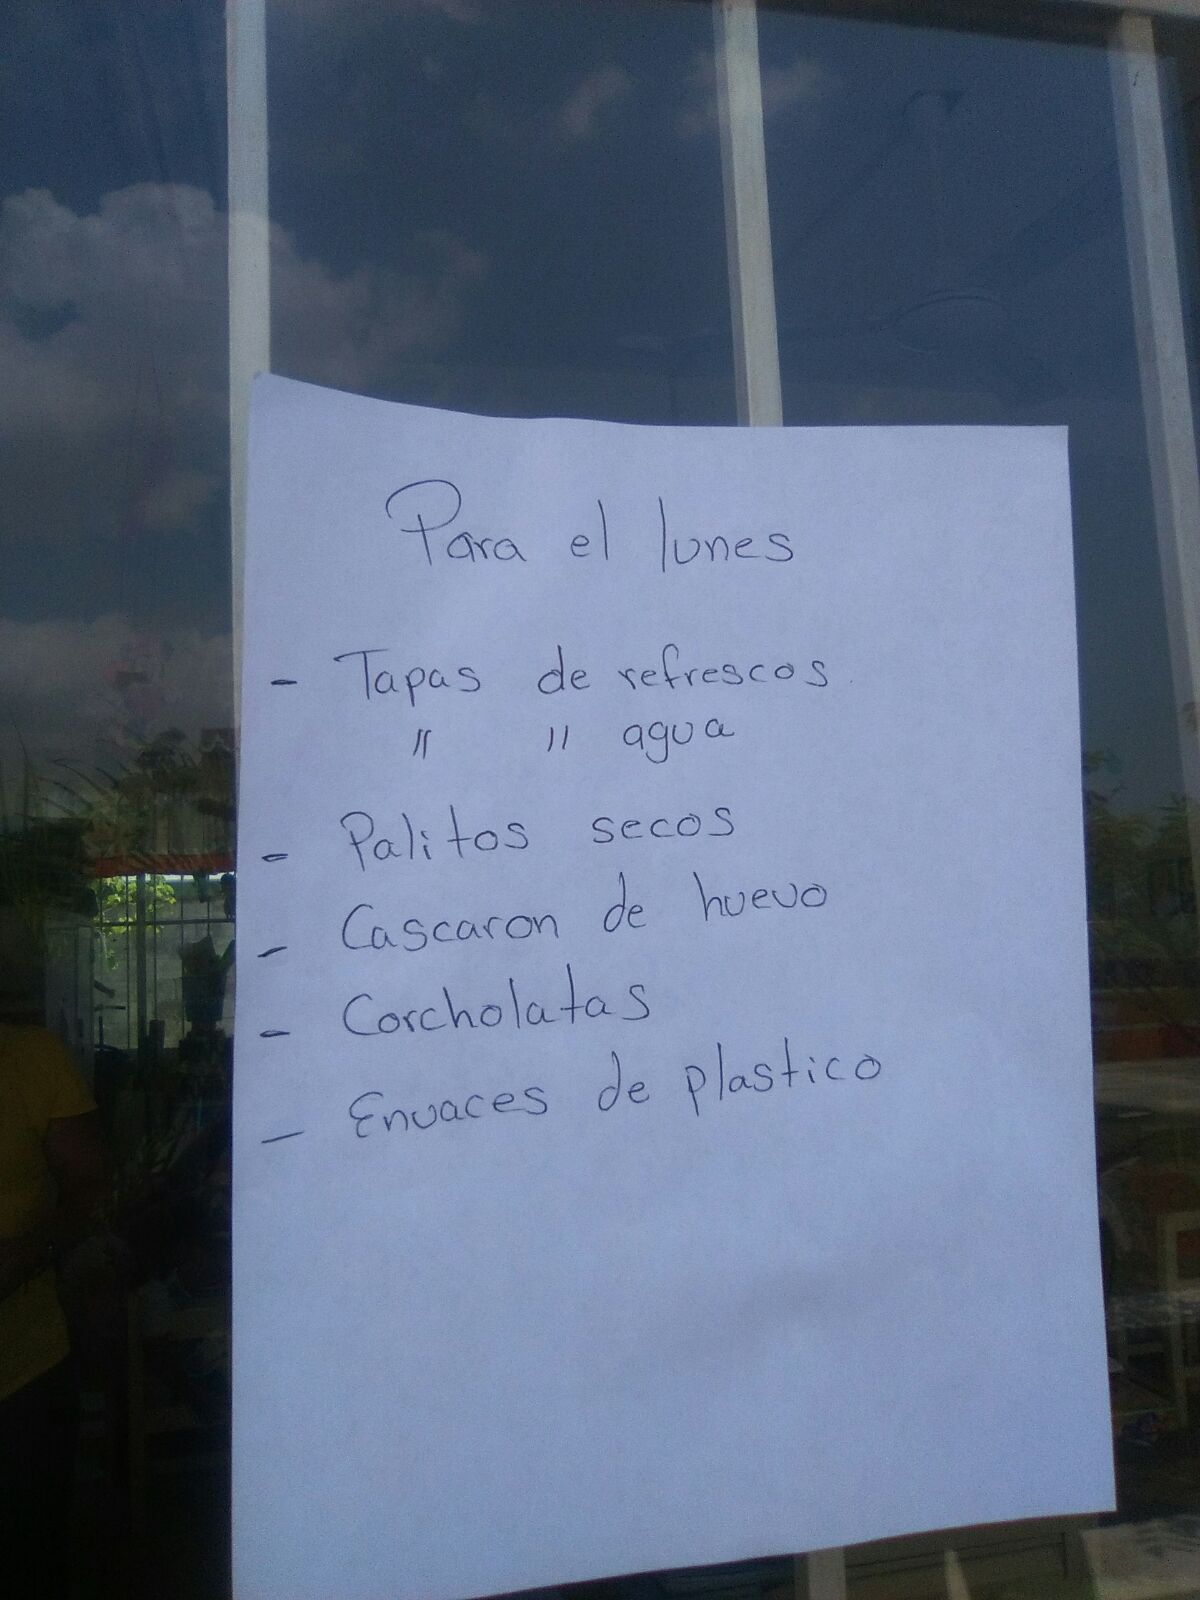 Para el lunes
- Tapas de refrescos
" " agua
- Palitos secos
- Cascaron de huevo
- Corcholatas
- Envaces de plastico